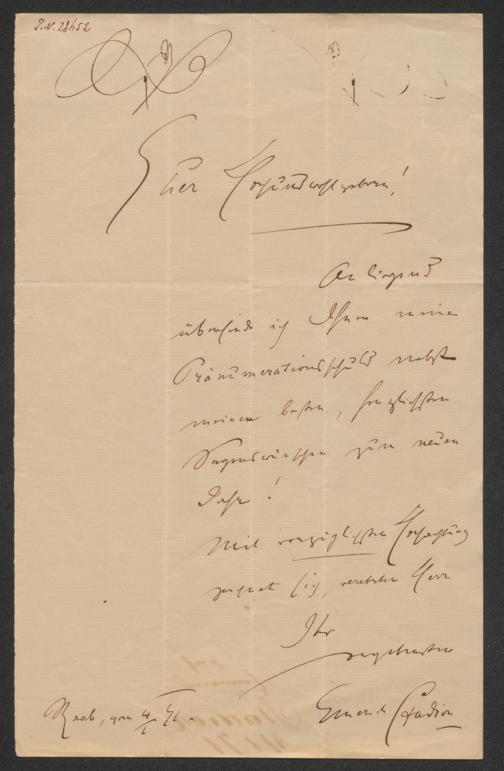 I.N. 28452
Euer Hochundwohlgeboren!
Anliegend
übersende ich Ihnen meine
Pränumerationsschuld nebst
meinen besten, herzlichsten
Segenswünschen zum neuen
Jahr!
Mit vorzüglichster Hochachtung
zeichnet sich, verehrter Herr
Ihr
ergebenster
Emerich Stadion
Raab, am 4/1 71.